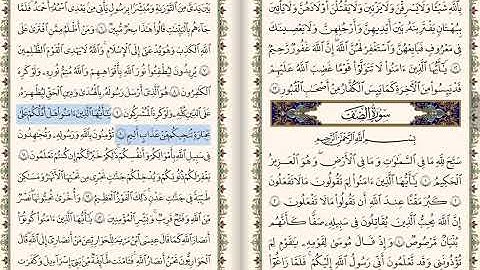 بِٱللَّهِ شَيْـًٔا وَلَا يَسْرِقْنَ وَلَا يَزْنِينَ وَلَا يَقْتُلْنَ أَوْلَٰدَهُنَّ وَلَا يَأْتِينَ
بِبُهْتَٰنٍ يَفْتَرِينَهُۥ بَيْنَ أَيْدِيهِنَّ وَأَرْجُلِهِنَّ وَلَا يَعْصِينَكَ
فِى مَعْرُوفٍ فَبَايِعْهُنَّ وَٱسْتَغْفِرْ لَهُنَّ ٱللَّهَ إِنَّ ٱللَّهَ غَفُورٌ رَّحِيمٌ
١٢ يَٰٓأَيُّهَا ٱلَّذِينَ ءَامَنُوا۟ لَا تَتَوَلَّوْا۟ قَوْمًا غَضِبَ ٱللَّهُ عَلَيْهِمْ
قَدْ يَئِسُوا۟ مِنَ ٱلْءَاخِرَةِ كَمَا يَئِسَ ٱلْكُفَّارُ مِنْ أَصْحَٰبِ ٱلْقُبُورِ
سُورَةُ الصَّفِّ
بِسْمِ ٱللَّهِ ٱلرَّحْمَٰنِ ٱلرَّحِيمِ
سَبَّحَ لِلَّهِ مَا فِى ٱلسَّمَٰوَٰتِ وَمَا فِى ٱلْأَرْضِ وَهُوَ ٱلْعَزِيزُ
ٱلْحَكِيمُ ١ يَٰٓأَيُّهَا ٱلَّذِينَ ءَامَنُوا۟ لِمَ تَقُولُونَ مَا لَا تَفْعَلُونَ
٢ كَبُرَ مَقْتًا عِندَ ٱللَّهِ أَن تَقُولُوا۟ مَا لَا تَفْعَلُونَ ٣
إِنَّ ٱللَّهَ يُحِبُّ ٱلَّذِينَ يُقَٰتِلُونَ فِى سَبِيلِهِۦ صَفًّا كَأَنَّهُم
بُنْيَٰنٌ مَّرْصُوصٌ ٤ وَإِذْ قَالَ مُوسَىٰ لِقَوْمِهِۦ يَٰقَوْمِ لِمَ
تُؤْذُونَنِى وَقَد تَّعْلَمُونَ أَنِّى رَسُولُ ٱللَّهِ إِلَيْكُمْ فَلَمَّا زَاغُوٓا۟
بَيْنَ يَدَىَّ مِنَ ٱلتَّوْرَىٰةِ وَمُبَشِّرًۢا بِرَسُولٍ يَأْتِى مِنۢ بَعْدِى ٱسْمُهُۥٓ أَحْمَدُ فَلَمَّا
جَآءَهُم بِٱلْبَيِّنَٰتِ قَالُوا۟ هَٰذَا سِحْرٌ مُّبِينٌ ٦ وَمَنْ أَظْلَمُ مِمَّنِ ٱفْتَرَىٰ عَلَى
ٱللَّهِ ٱلْكَذِبَ وَهُوَ يُدْعَىٰٓ إِلَى ٱلْإِسْلَٰمِ وَٱللَّهُ لَا يَهْدِى ٱلْقَوْمَ ٱلظَّٰلِمِينَ
٧ يُرِيدُونَ لِيُطْفِـُٔوا۟ نُورَ ٱللَّهِ بِأَفْوَٰهِهِمْ وَٱللَّهُ مُتِمُّ نُورِهِۦ وَلَوْ كَرِهَ
ٱلْكَٰفِرُونَ ٨ هُوَ ٱلَّذِىٓ أَرْسَلَ رَسُولَهُۥ بِٱلْهُدَىٰ وَدِينِ ٱلْحَقِّ لِيُظْهِرَهُۥ
عَلَى ٱلدِّينِ كُلِّهِۦ وَلَوْ كَرِهَ ٱلْمُشْرِكُونَ ٩ يَٰٓأَيُّهَا ٱلَّذِينَ ءَامَنُوا۟ هَلْ أَدُلُّكُمْ عَلَىٰ
تِجَٰرَةٍ تُنجِيكُم مِّنْ عَذَابٍ أَلِيمٍ ١٠ تُؤْمِنُونَ بِٱللَّهِ وَرَسُولِهِۦ وَتُجَٰهِدُونَ
فِى سَبِيلِ ٱللَّهِ بِأَمْوَٰلِكُمْ وَأَنفُسِكُمْ ذَٰلِكُمْ خَيْرٌ لَّكُمْ إِن كُنتُمْ تَعْلَمُونَ ١١
يَغْفِرْ لَكُمْ ذُنُوبَكُمْ وَيُدْخِلْكُمْ جَنَّٰتٍ تَجْرِى مِن تَحْتِهَا ٱلْأَنْهَٰرُ وَمَسَٰكِنَ
طَيِّبَةً فِى جَنَّٰتِ عَدْنٍ ذَٰلِكَ ٱلْفَوْزُ ٱلْعَظِيمُ ١٢ وَأُخْرَىٰ تُحِبُّونَهَا نَصْرٌ
مِّنَ ٱللَّهِ وَفَتْحٌ قَرِيبٌ وَبَشِّرِ ٱلْمُؤْمِنِينَ ١٣ يَٰٓأَيُّهَا ٱلَّذِينَ ءَامَنُوا۟ كُونُوٓا۟
أَنصَارَ ٱللَّهِ كَمَا قَالَ عِيسَى ٱبْنُ مَرْيَمَ لِلْحَوَارِيِّـۧنَ مَنْ أَنصَارِىٓ إِلَى ٱللَّهِ
قَالَ ٱلْحَوَارِيُّونَ نَحْنُ أَنصَارُ ٱللَّهِ فَـَٔامَنَت طَّآئِفَةٌ